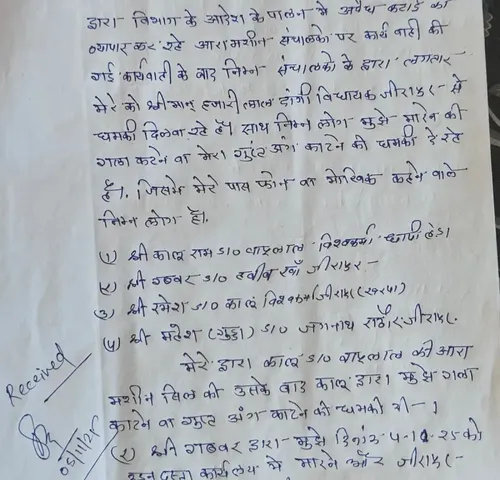 द्वारा विभाग के आदेश के पालन मे अवैध कटाई का
व्यापार कर रहे आरामशीन संचालको पर कार्यवाही की
गई कार्यवाही के बाद निम्न संचालको के द्वारा लगातार
मेरे को श्रीमान हजारीलाल दांगी विधायक जीरापुर - से
धमकी दिलवा रहे है। साथ निम्न लोग मुझे मारने की
गला काटने वा मेरा गुप्त अंग काटने की धमकी दे रहे
है। जिसमे मेरे पास फोन वा मोखिक कहने वाले
निम्न लोग है।
(1) श्री कालू राम S/O बाबूलाल विश्वकर्मा छापी हेडा
(2) श्री गब्बर S/O हबीब खाँ जीरापुर -
(3) श्री रमेश S/O कालू विश्वकर्मा जीरापुर
(4) श्री महेश (गुड्डा) S/O जगन्नाथ राठौर जीरापुर
मेरे द्वारा कालू S/O बाबूलाल की आरा
मशीन सिल की उसके बाद कालू द्वारा मुझे गला
काटने वा गुप्त अंग काटने की धमकी दी - ।
(2) श्री गब्बर द्वारा - मुझे दिनांक को
कार्यालय मे मारने और जीरापुर -
Received
05/11/25